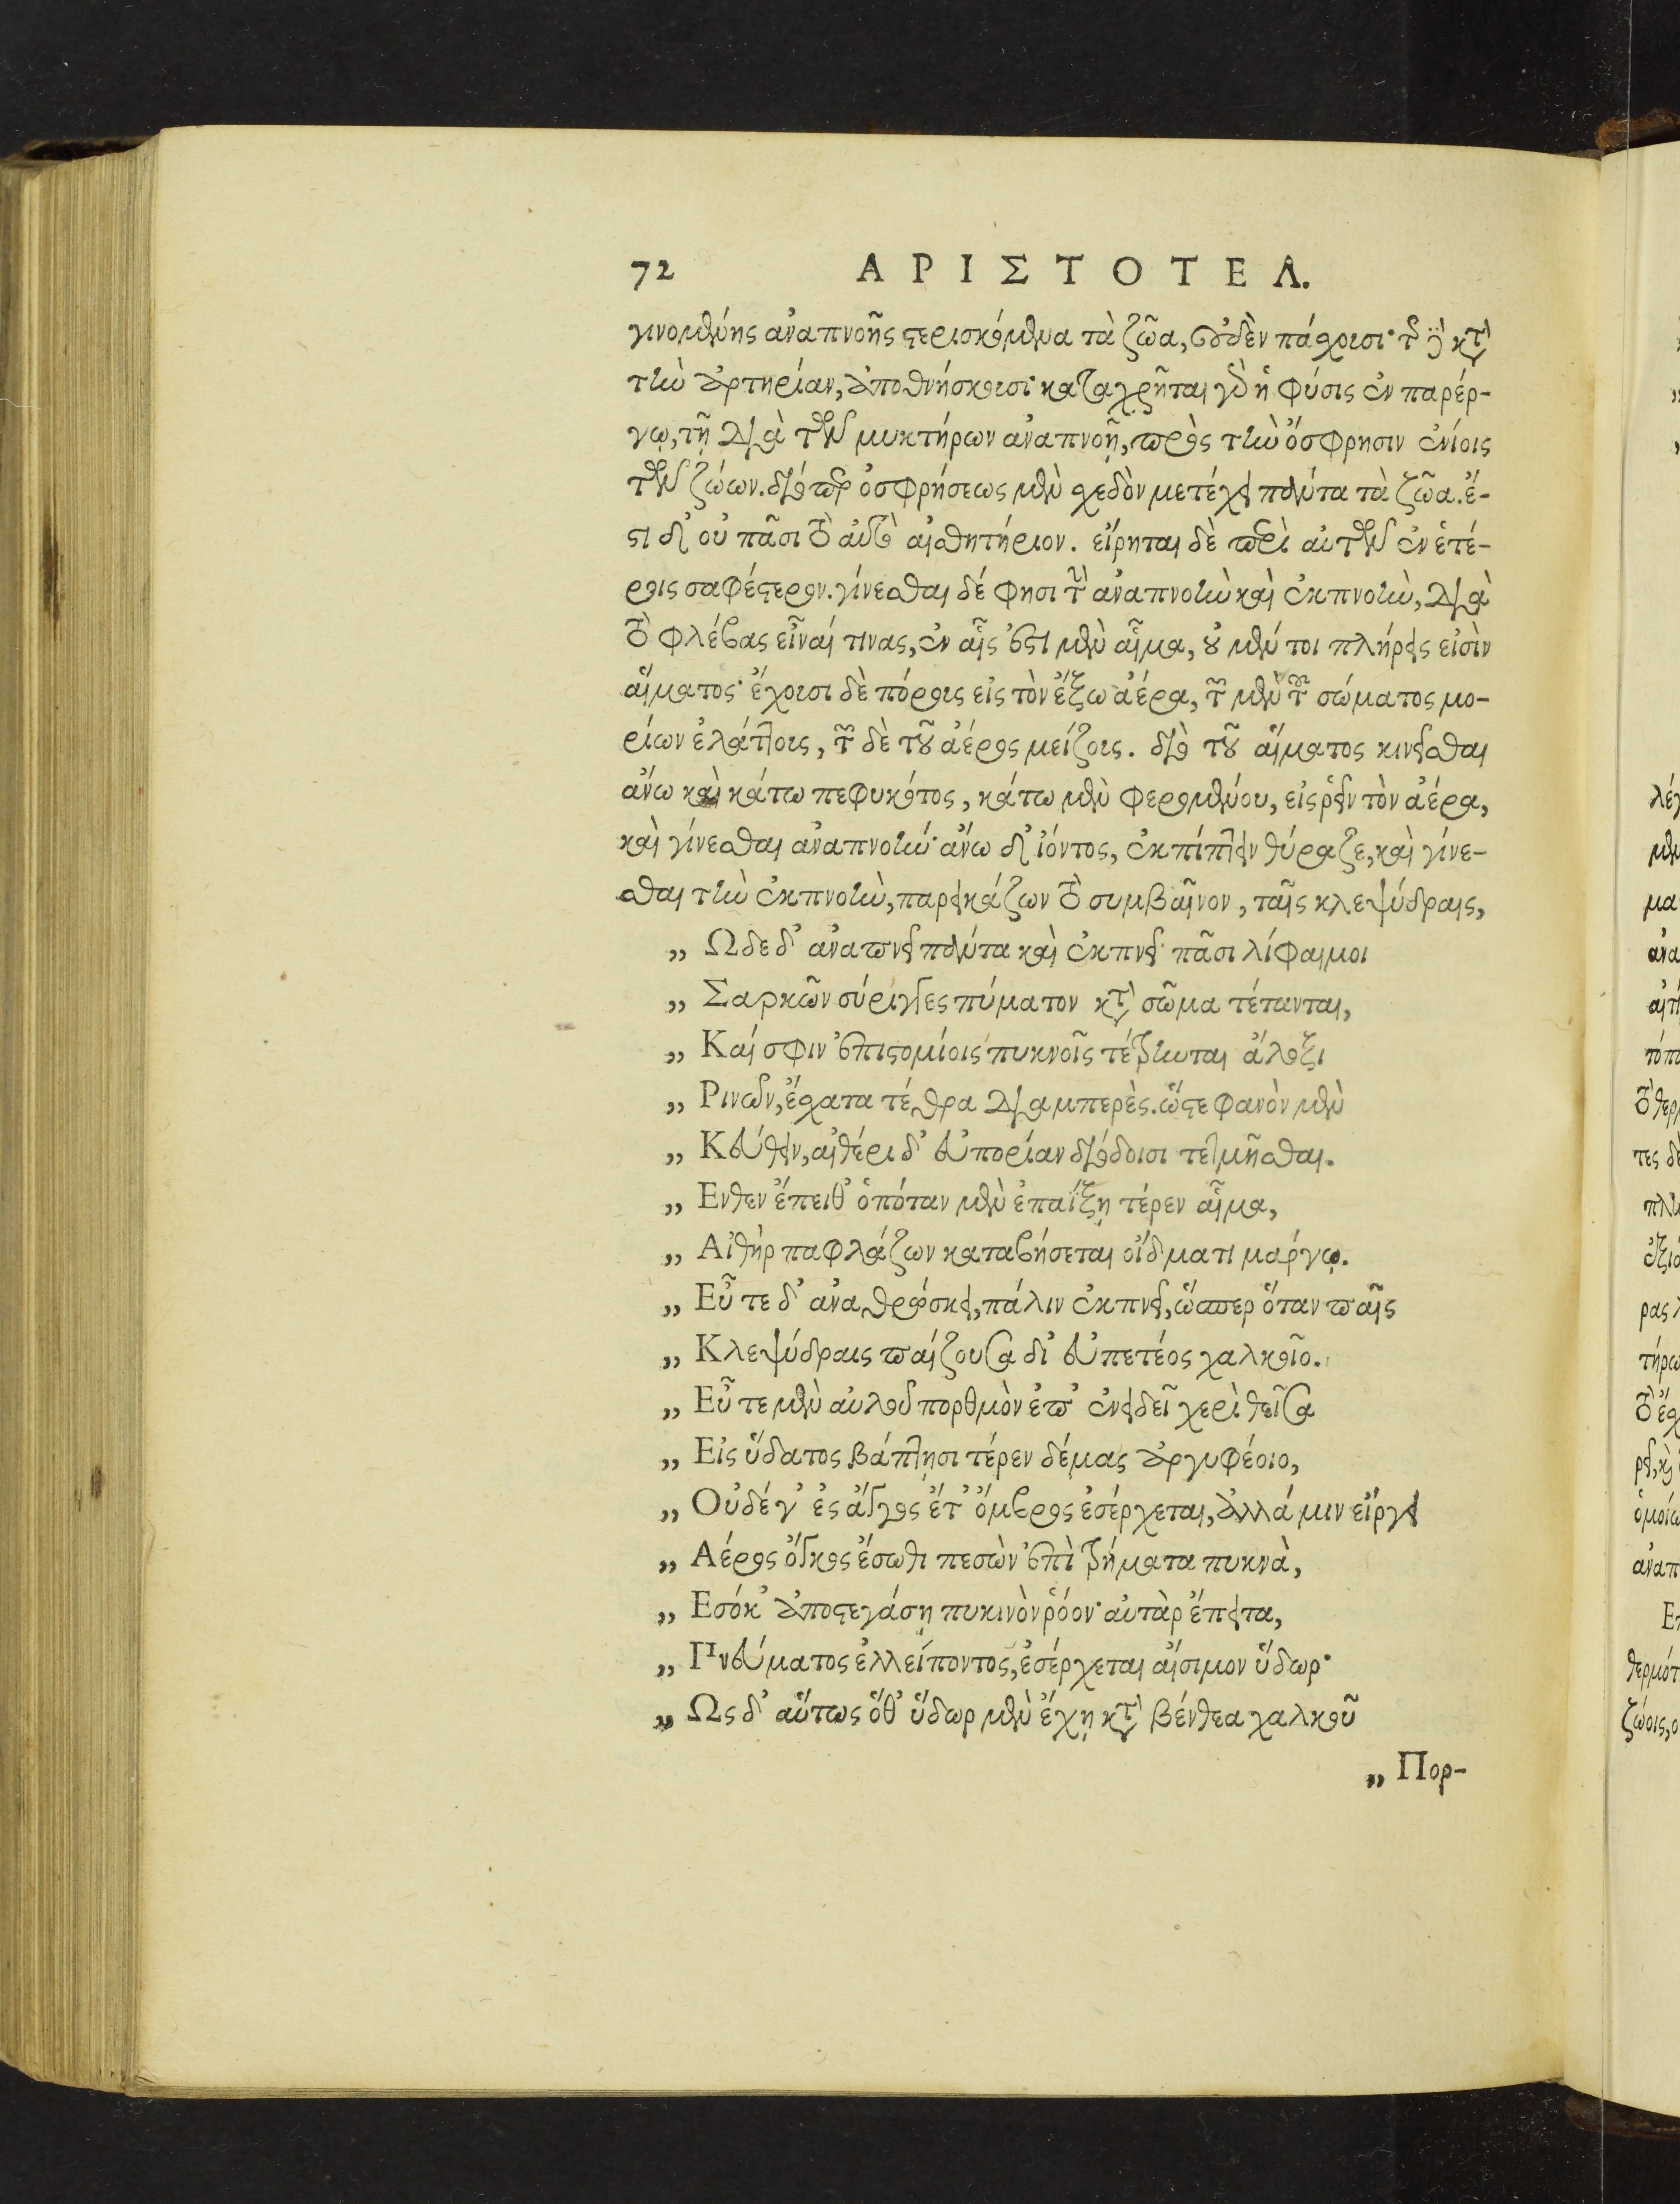 72 ΑΡΙΣΤΟΤΕΛ.
γινομένης ἀναπνοῆς στερισκόμενα τὰ ζῶα, οὐδὲν πάσχουσι· τῆς δὲ κατὰ
τὴν ἀρτηρίαν, ἀποθνήσκουσι· καταχρῆται γὰρ ἡ φύσις ἐν παρέρ-
γῳ, τῇ διὰ τῶν μυκτήρων ἀναπνοῇ, πρὸς τὴν ὄσφρησιν ἐνίοις
τῶν ζώων. διόπερ ὀσφρήσεως μὲν σχεδὸν μετέχει πάντα τὰ ζῶα. ἔ-
στι δ' οὐ πᾶσι τὸ αὐτὸ αἰσθητήριον. εἴρηται δὲ περὶ αὐτῶν ἐν ἑτέ-
ροις σαφέστερον. γίνεσθαι δέ φησι τὴν ἀναπνοὴν καὶ ἐκπνοὴν, διὰ
τὸ φλέβας εἶναί τινας, ἐν αἷς ἐστι μὲν αἷμα, οὐ μέντοι πλήρεις εἰσὶν
αἵματος· ἔχουσι δὲ πόρους εἰς τὸν ἔξω ἀέρα, τῶν μὲν τοῦ σώματος μο-
ρίων ἐλάττους, τῶν δὲ τοῦ ἀέρος μείζους. διὸ τοῦ αἵματος κινεῖσθαι
ἄνω καὶ κάτω πεφυκότος, κάτω μὲν φερομένου, εἰσρεῖν τὸν ἀέρα,
καὶ γίνεσθαι ἀναπνοήν· ἄνω δ' ἰόντος, ἐκπίπτειν θύραζε, καὶ γίνε-
σθαι τὴν ἐκπνοὴν, παρεικάζων τὸ συμβαῖνον, ταῖς κλεψύδραις,
„ Ωδε δ' ἀναπνεῖ πάντα καὶ ἐκπνεῖ· πᾶσι λίφαιμοι
„ Σαρκῶν σύριγγες πύματον κατὰ σῶμα τέτανται,
„ Καί σφιν ἐπιστομίοις πυκνοῖς τέτρηνται ἄλοξι
„ Ρινῶν, ἔσχατα τέθρα διαμπερὲς. ὥστε φανὸν μὲν
„ Κεύθειν, αἰθέρι δ' εὐπορίαν διόδοισι τετμῆσθαι.
„ Ενθεν ἔπειθ' ὁπόταν μὲν ἐπαΐξῃ τέρεν αἷμα,
„ Αἰθὴρ παφλάζων καταβήσεται οἴδματι μάργῳ.
„ Εὖτε δ' ἀναθρώσκει, πάλιν ἐκπνεῖ, ὥσπερ ὅταν παῖς
„ Κλεψύδραις παίζουσα δι' εὐπετέος χαλκοῖο.
„ Εὖτε μὲν αὐλοῦ πορθμὸν ἐπ' ἐνειδεῖ χερὶ θεῖσα
„ Εἰς ὕδατος βάπτῃσι τέρεν δέμας ἀργυφέοιο,
„ Οὐδέ γ' ἐς ἄγγος ἔτ' ὄμβρος ἐσέρχεται, ἀλλά μιν εἴργει
„ Αέρος ὄγκος ἔσωθι πεσὼν ἐπὶ τρήματα πυκνὰ,
„ Εσόκ' ἀποστεγάσῃ πυκινὸν ῥόον· αὐτὰρ ἔπειτα,
„ Πνεύματος ἐλλείποντος, ἐσέρχεται αἴσιμον ὕδωρ·
„ Ως δ' αὕτως ὅθ' ὕδωρ μὲν ἔχῃ κατὰ βένθεα χαλκοῦ
„ Πορ-